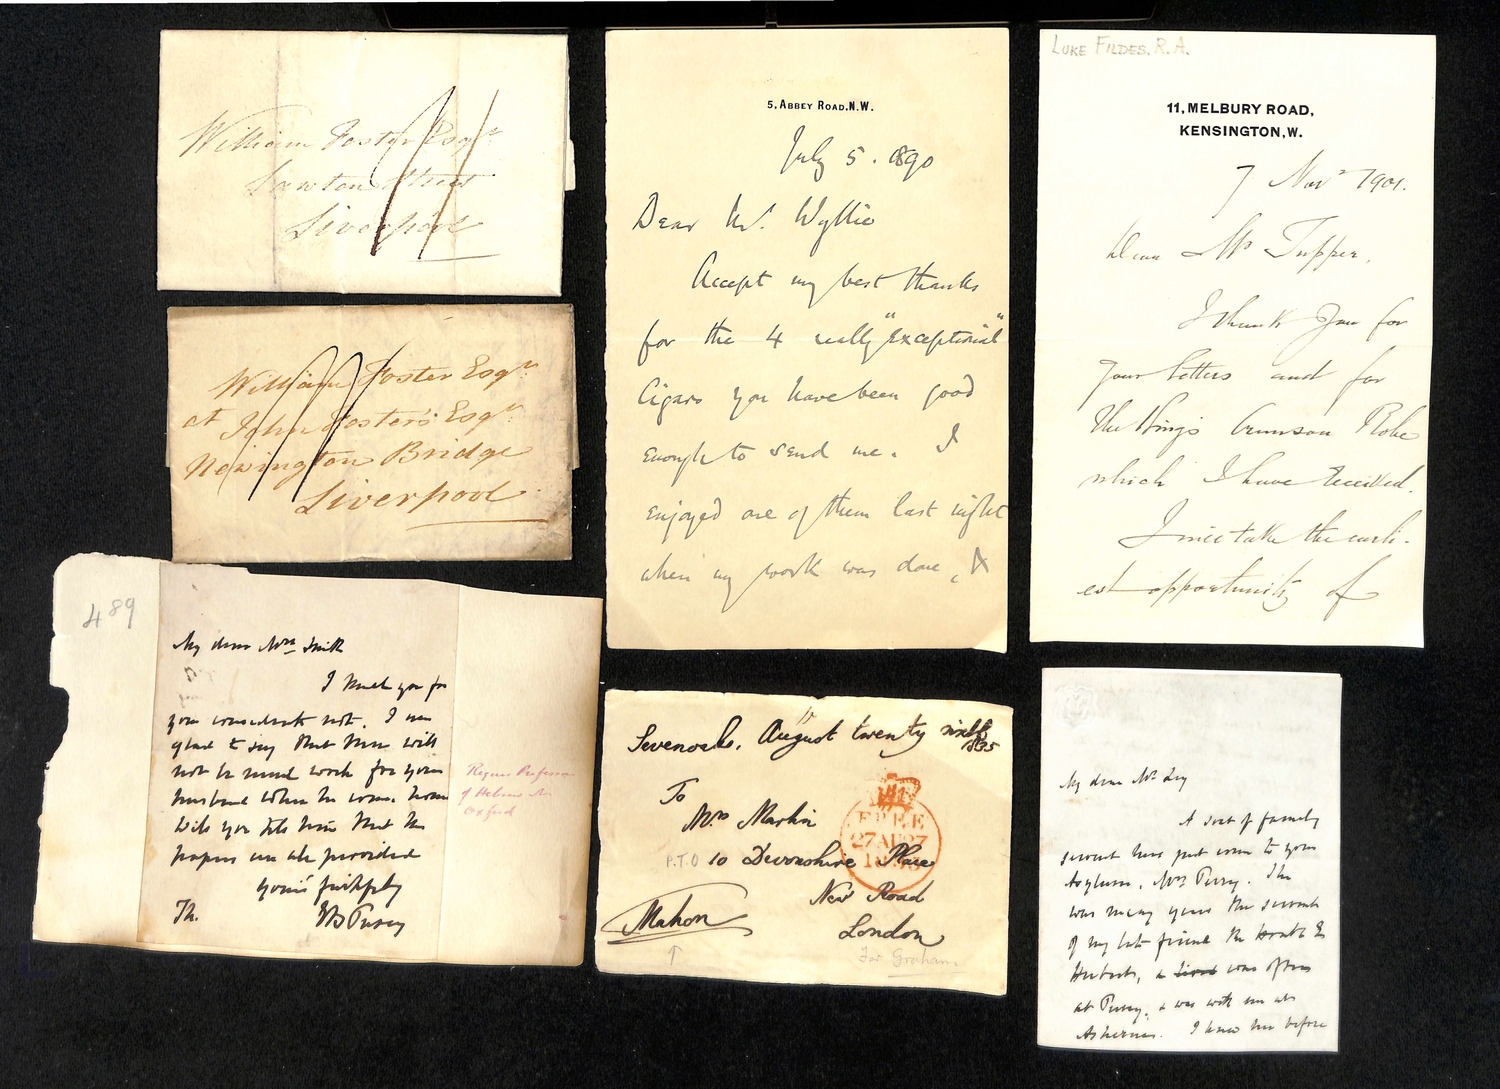 William Foster Esqr
Lawton Street
Liverpool
William Foster Esqr
at John Foster's Esqr
Newington Bridge
Liverpool
489
My dear Mrs Smith
I thank you for
your considerate note. I am
glad to say that there will
not be much work for your
husband when he comes home
Will you tell him that the
papers are all provided
yours faithfully
Th. EBPusey
Regius Professor
of Hebrew
Oxford
5, ABBEY ROAD, N.W.
July 5. 1890
Dear Mr. Wyllie
Accept my best thanks
for the 4 really "exceptional"
Cigars you have been good
enough to send me. I
enjoyed one of them last night
when my work was done, &
Sevenoaks, August twenty sixth
1835
To
Mrs Martin
P.T.O 10 Devonshire Place
New Road
London
Mahon
For Graham
FREE
27AU27
1835
LUKE FILDES. R.A.
11, MELBURY ROAD,
KENSINGTON, W.
7 Novr 1901.
Dear Mr Tupper,
I thank you for
your letters and for
the Kings Crimson Robe
which I have received.
I will take the earli-
est opportunity of
My dear Mr
A sort of family
servant has just come to your
Asylum, Mrs Perry. She
was many years the servant
of my late friend the
Herberts, & was often
at Pusey, & was with me at
I knew her before